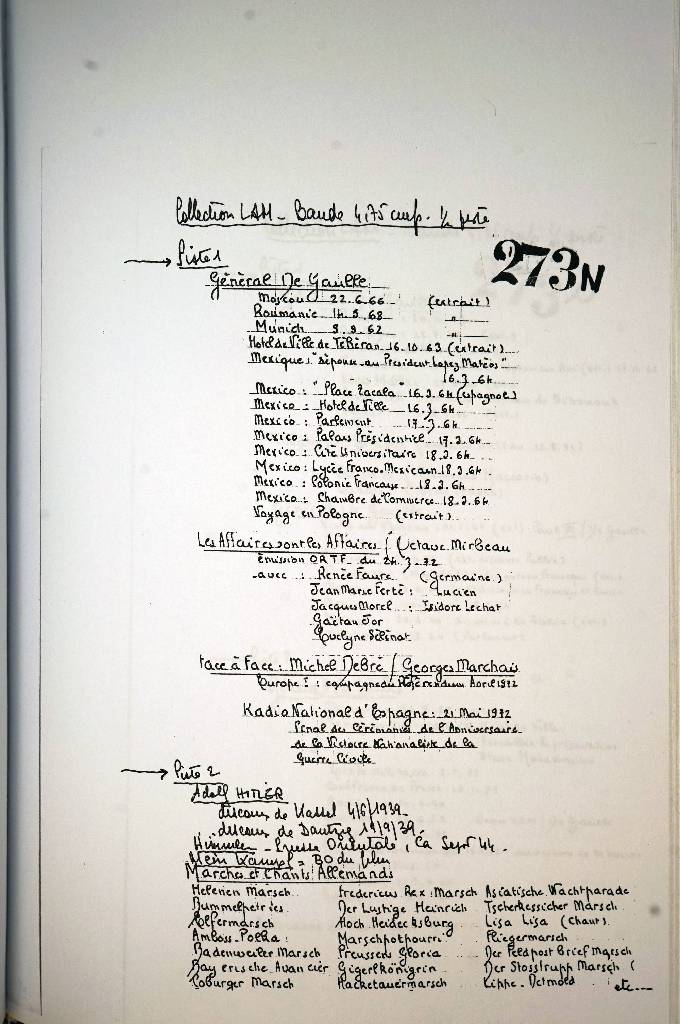 Collection LAM - Bande 4,75 cm/s. 1/2 piste
273N
→ Piste 1
Général De Gaulle
Moscou 22.6.66 (extrait)
Roumanie 14.5.68 "
Munich 9.9.62 "
Hotel de Ville de Téhéran 16.10.63 (extrait)
Mexique: "Réponse au President Lopez Mateos"
16.3.64
Mexico : "Place Zacala" 16.3.64 (espagnol)
Mexico : Hotel de Ville 16.3.64
Mexico : Parlement 17.3.64
Mexico : Palais Présidentiel 17.3.64
Mexico : Cité Universitaire 18.3.64
Mexico : Lycée Franco-Mexicain 18.3.64
Mexico : Colonie Francaise 18.3.64
Mexico : Chambre de Commerce 18.3.64
Voyage en Pologne (extrait)
Les Affaires sont les Affaires / Octave Mirbeau
émission ORTF du 24.3.72
avec : Renée Faure (Germaine)
Jean Marie Ferté : Lucien
Jacques Morel : Isidore Lechat
Gaëtan Jor
Evelyne Sélénat
Face à Face : Michel Debré / Georges Marchais
Europe 1 : campagne du Référendum Avril 1972
Radio National d'Espagne : 21 Mai 1972
Final des Cérémonies de l'Anniversaire
de la Victoire Nationaliste de la
Guerre Civile
→ Piste 2
Adolf HITLER
discours de Kassel 4/6/1939
discours de Dantzig 19/9/39.
Himmler - Prusse Orientale, Ca Sept 44.
Mein Kampf = BO du film
Marches et Chants Allemands
Helenen Marsch Fredericus Rex Marsch Asiatische Wachtparade
Bummelpetrus Der Lustige Heinrich Tscherkessicher Marsch
Elfermarsch Hoch Heidecksburg Lisa Lisa (chant)
Amboss-Polka Marschpotpourri Fliegermarsch
Badenweiler Marsch Preussens Gloria Der Feldpost Brief Marsch
Bayerische Avancier Gigerlkönigin Der Stosstrupp Marsch (
Coburger Marsch Hacketauermarsch Lippe-Detmold etc...